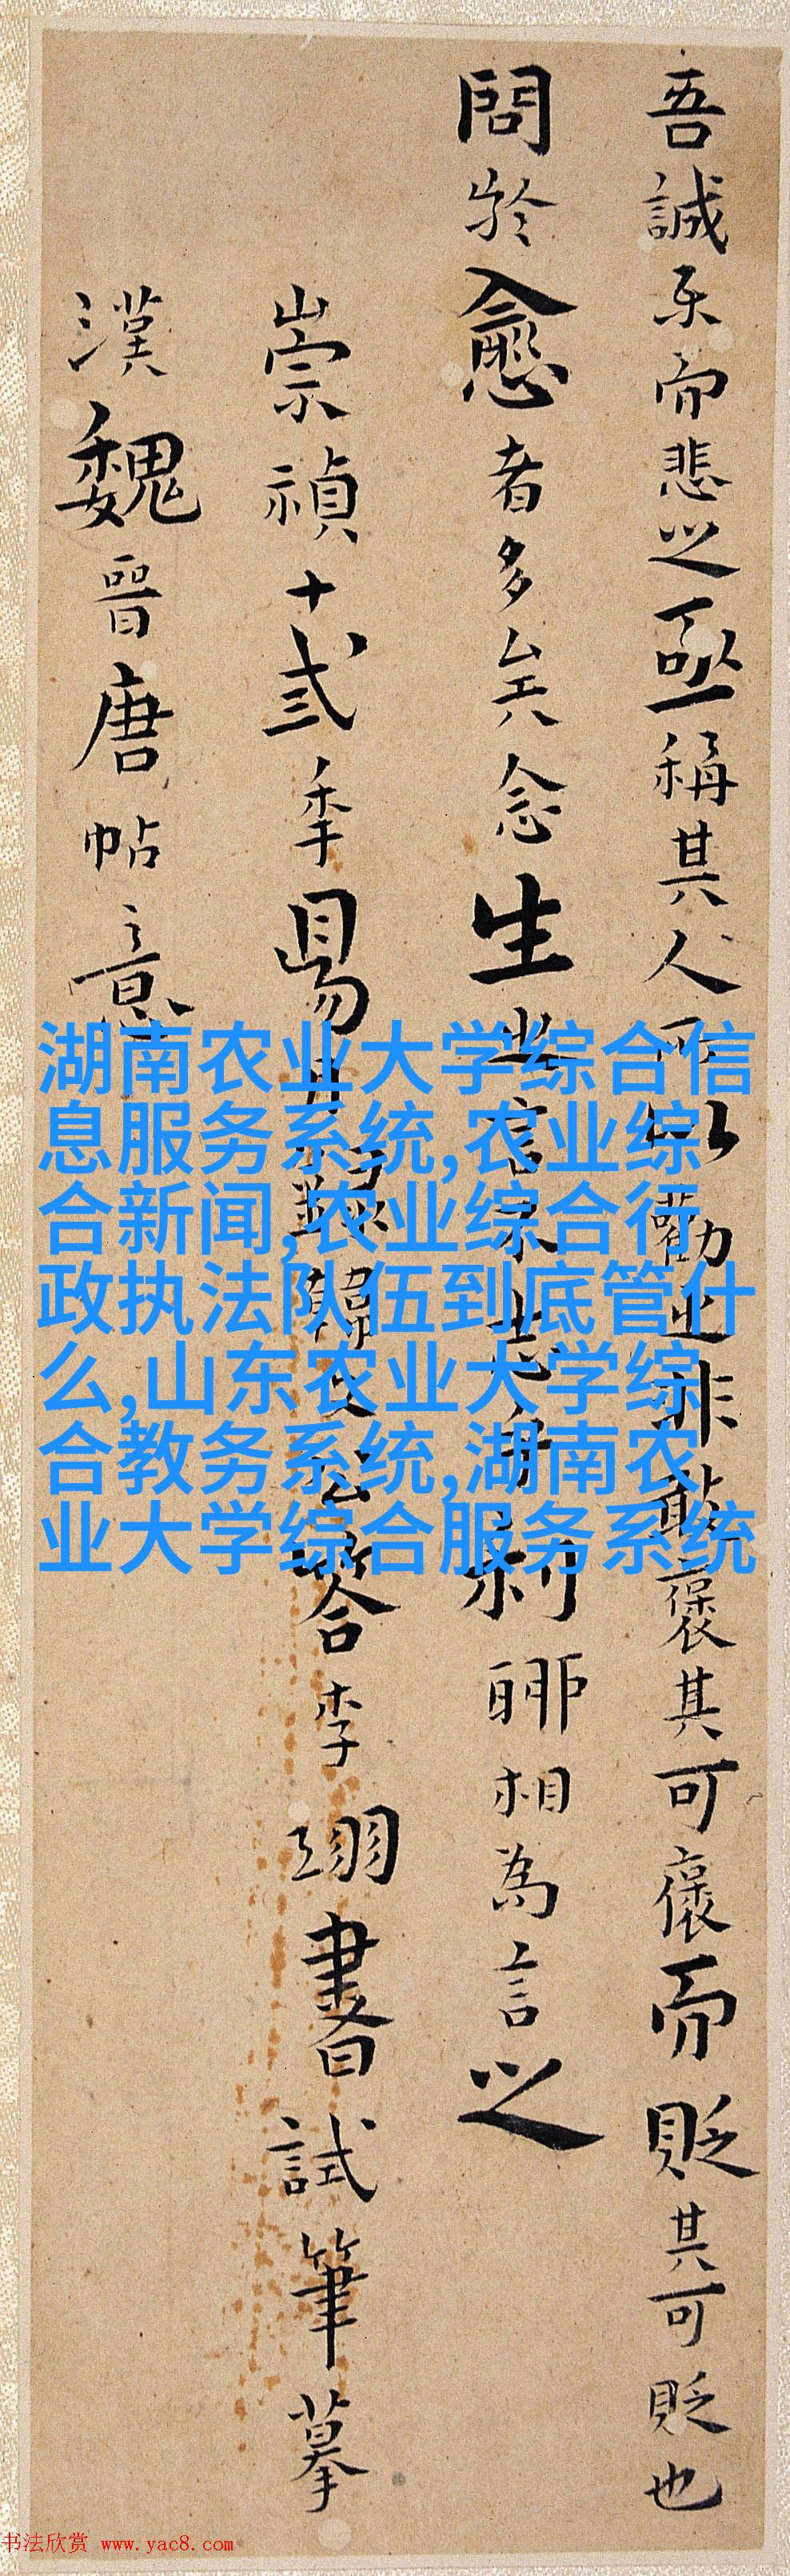 吾誠樂而悲之亟稱其人所以勸之非敢褒其可褒而貶其可貶也
問於愈者多矣念生之言不志於利聊相為言之
崇禎十弍年昜月錄韓文公答李翊書試筆摹
漢魏晉唐帖意
湖南农业大学综合信
息服务系统,农业综
合新闻,农业综合行
政执法队伍到底管什
么,山东农业大学综
合教务系统,湖南农
业大学综合服务系统
书法欣赏 www.yac8.com